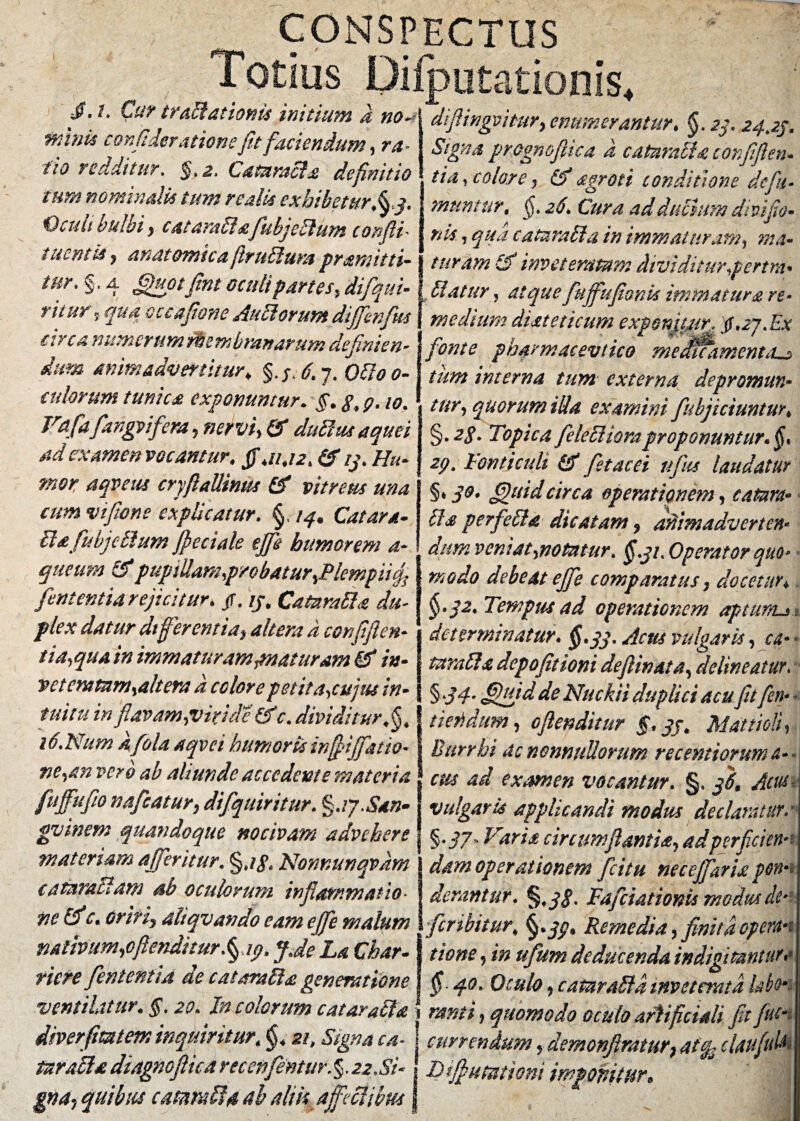 CONSPECTUS
Totius Diſputationis.
§. 1. Cur tractationis initium à no-
minis conſideratione fit faciendum, ra-
tio redditur. §. 2. Cataractæ definitio
tum nominalis tum realis exhibetur. §. 3.
Oculi bulbi, cataractæ ſubjectum conſti-
tuentis, anatomica ſtructura præmitti-
tur. §. 4 Quot ſint oculi partes, diſqui-
ritur, qua occaſione Auctorum diſſenſus
circa numerum membranarum definien-
dum animadvertitur. §. 5. 6. 7. Octo o-
culorum tunicæ exponuntur. §. 8. 9. 10.
Vaſa ſangviſera, nervi, & ductus aquei
ad examen vocantur. §. 11. 12. & 13. Hu-
mor aqveus cryſtallinus & vitreus una
cum viſione explicatur. §. 14. Catara-
ctæ ſubjectum ſpeciale eſſe humorem a-
queum & pupillam, probatur, Plempiiq;
ſententia rejicitur. §. 15. Cataractæ du-
plex datur differentia, altera à conſiſten-
tia, qua in immaturam, maturam & in-
veteratam, altera à colore petita, cujus in-
tuitu in flavam, viride &c. dividitur. §.
16. Num à ſola aqvei humoris inſpiſſatio-
ne, an vero ab aliunde accedente materia
ſuffuſio naſcatur, diſquiritur. §. 17. San-
gvinem quandoque nocivam advehere
materiam aſſeritur. §. 18. Nonnunqvam
cataractam ab oculorum inflammatio-
ne &c. oriri, aliqvando eam eſſe malum
nativum, oſtenditur. §. 19. J. de La Char-
riere ſententia de cataractæ generatione
ventilatur. §. 20. In colorum cataractæ
diverſitatem inquiritur. §. 21. Signa ca-
taractæ diagnoſtica recenſentur. §. 22. Si-
gna, quibus cataracta ab aliis affectibus
diſtingvitur, enumerantur. §. 23. 24. 25.
Signa prognoſtica à cataractæ conſiſten-
tia, colore, & ægroti conditione deſu-
muntur. §. 26. Cura ad ductum diviſio-
nis, quâ cataracta in immaturam, ma-
turam & inveteratam dividitur, pertra-
ctatur, atque ſuffuſionis immaturæ re-
medium diæteticum exponitur. §. 27. Ex
fonte pharmacevtico medicamenta
tùm interna tum externa depromun-
tur, quorum illa examini ſubjiciuntur.
§. 28. Topica ſelectiora proponuntur. §.
29. Fonticuli & ſetacei uſus laudatur
§. 30. Quid circa operationem, catara-
ctæ perfectæ dicatam, animadverten-
dum veniat, notatur. §. 31. Operator quo-
modo debeat eſſe comparatus, docetur.
§. 32. Tempus ad operationem aptum
determinatur. §. 33. Acus vulgaris, ca-
taractæ depoſitioni deſtinata, delineatur.
§. 34. Quid de Nuckii duplici acu fit ſen-
tiendum, oſtenditur §. 35. Mattioli,
Burrhi ac nonnullorum recentiorum a-
cus ad examen vocantur. §. 36. Acus
vulgaris applicandi modus declaratur.
§. 37. Variæ circumſtantiæ, ad perficien-
dam operationem ſcitu neceſſariæ pon-
derantur. §. 38. Faſciationis modus de-
ſcribitur. §. 39. Remedia, finitâ opera-
tione, in uſum deducenda indigitantur.
§. 40. Oculo, cataractâ inveteratâ labo-
ranti, quomodo oculo artificiali fit ſuc-
currendum, demonſtratur, atq; clauſula
Diſputationi imponitur.